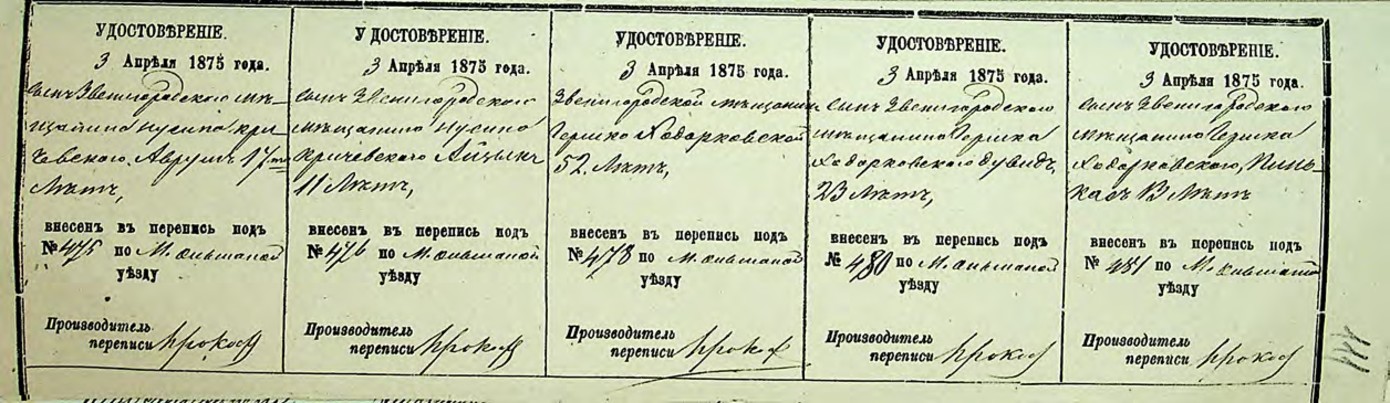 УДОСТОВѢРЕНІЕ.
3 Апрѣля 1875 года.
Сынъ Звенигородскаго мѣ-
щанина Нусина Кри
чевскаго, Аврумъ 17ти
Лѣтъ,
внесенъ въ перепись подъ
№ 475 по М. Ольшаной
уѣзду
Производитель
переписи
УДОСТОВѢРЕНІЕ.
3 Апрѣля 1875 года.
Сынъ Звенигородскаго
мѣщанина Нусина
Кричевскаго Айцыкъ
11 Лѣтъ,
внесенъ въ перепись подъ
№ 476 по М. Ольшаной
уѣзду
Производитель
переписи
УДОСТОВѢРЕНІЕ.
3 Апрѣля 1875 года.
Звенигородской мѣщанин
Гершко Ходорковской
52. Лѣтъ,
внесенъ въ перепись подъ
№ 478 по М. Ольшаной
уѣзду
Производитель
переписи
УДОСТОВѢРЕНІЕ.
3 Апрѣля 1875 года.
Сынъ Звенигородскаго
мѣщанина Гершка
Ходорковскаго Дувидъ,
23 Лѣтъ,
внесенъ въ перепись подъ
№ 480 по М. Ольшаной
уѣзду
Производитель
переписи
УДОСТОВѢРЕНІЕ.
3 Апрѣля 1875 года.
Сынъ Звенигородскаго
мѣщанина Гершка
Ходорковскаго, Пинь-
касъ 13 Лѣтъ
внесенъ въ перепись подъ
№ 481 по М. Ольшаной
уѣзду
Производитель
переписи